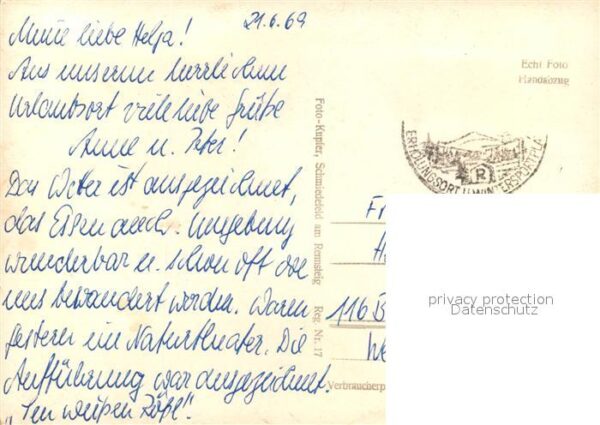 21.6.69
Meine liebe Helja!
Aus unserem herrlichen
Urlaubsort viele liebe Grüße
Anne u. Peter!
Das Wetter ist ausgezeichnet,
das Essen auch. Umgebung
wunderbar u. schon oft von
uns bewandert worden. Waren
gestern im Naturtheater. Die
Aufführung war ausgezeichnet.
"Im weißen Rößl".
Echt Foto
Handabzug
Foto-Kupfer, Schmiedefeld am Rennsteig Reg. Nr. 17
ERHOLUNGSORT U. WINTERSPORTPLA
R
F
H
116 B
We
Verbraucherp
privacy protection
Datenschutz